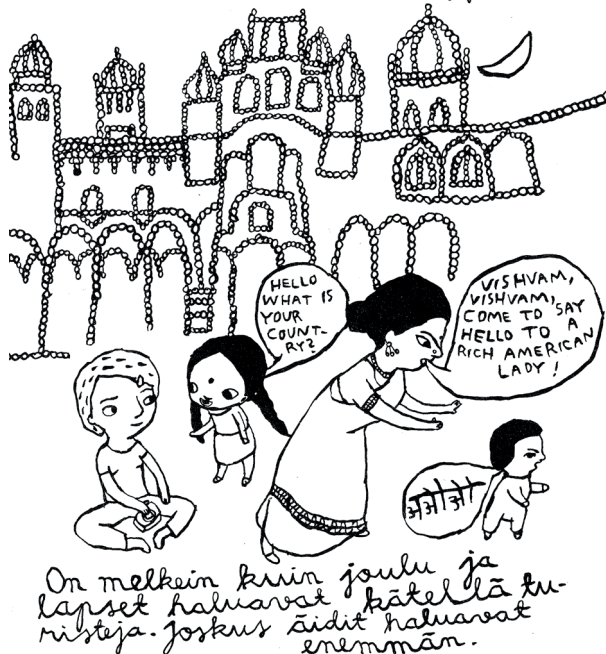 HELLO
WHAT IS
YOUR
COUNT-
RY?
VISHVAM,
VISHVAM,
COME TO SAY
HELLO TO A
RICH AMERICAN
LADY!
On melkein kuin joulu ja
lapset haluavat kätellä tu-
risteja. joskus äidit haluavat
enemmän.